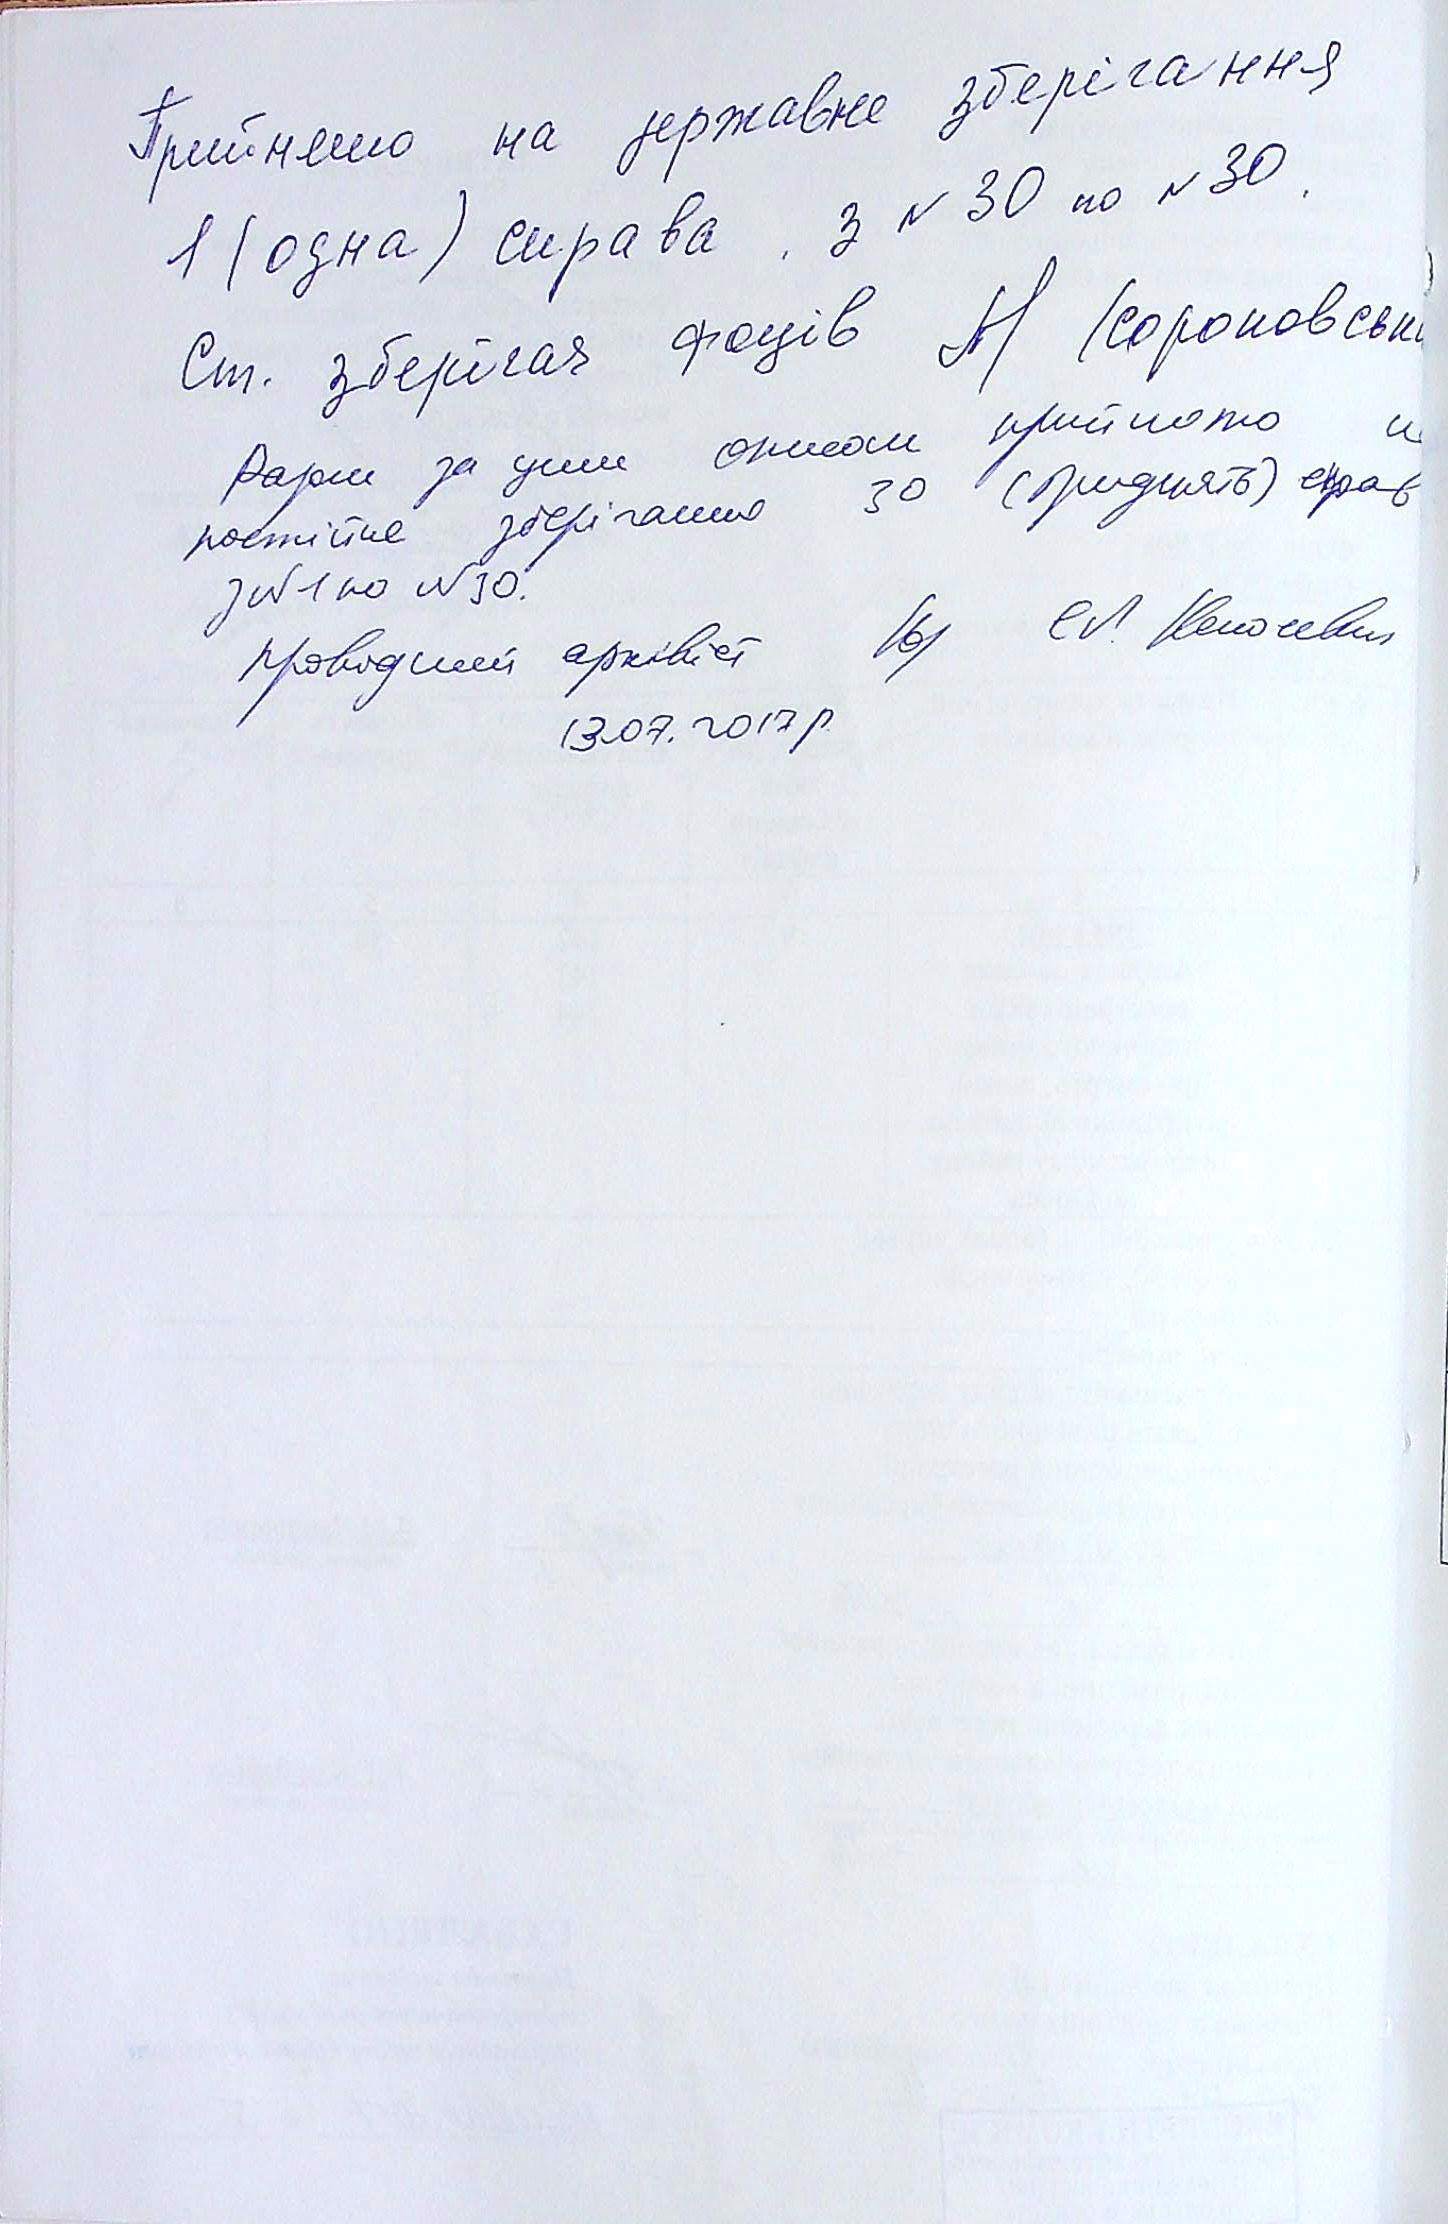 Прийнято на державне зберігання
1 (одна) справа. з №30 по №30.
Ст. зберігач фондів
Разом за цим описом прийнято н
постійне зберігання 30 (тридцять) справ
з №1 по №30.
Провідний архівіст
13.07.2017р.